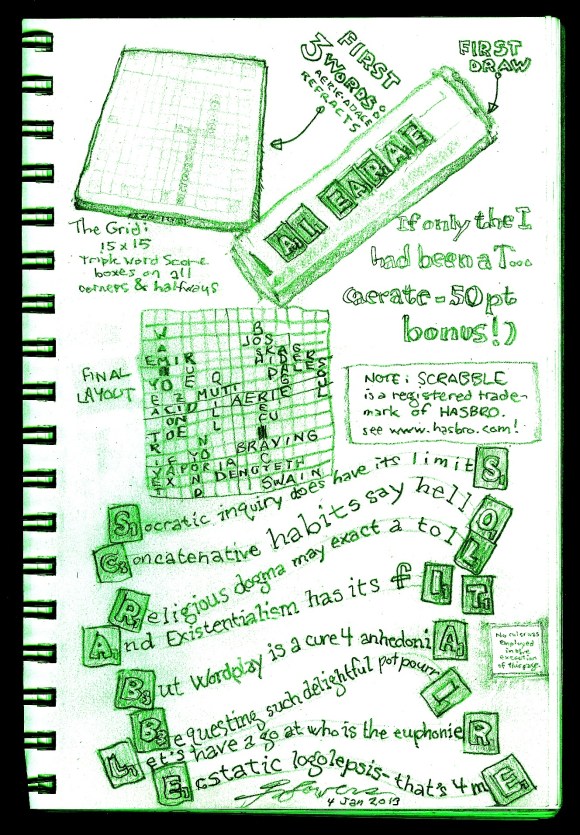 FIRST
3 WORDS:
AERIE-ADAGE
REFRACTS
FIRST
DRAW
AI EARAE
The Grid:
15 x 15
Triple Word Score
boxes on all
corners & halfways
If only the I
had been a T...
(aerate - 50 pt
bonus!)
FINAL
LAYOUT
EMIR
MUTI
AERIE
BRAVING
VAPORIA
DENOTETH
SWAIN
NOTE: SCRABBLE
is a registered trade-
mark of HASBRO.
see www.hasbro.com!
Socratic inquiry does have its limitS
Concatenative habits say hellO
Religious dogma may exact a tolL
And Existentialism has its fIT
But Wordplay is a cure 4 anhedoniA
Bequesting such delightful potpourrI
Let's have a go at who is the euphonieR
Ecstatic logolepsis - that's 4 mE
No ruler was
employed
in the
execution
of this page.
4 Jan 2013